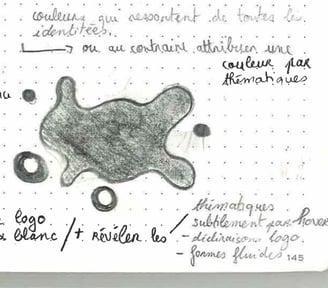 couleurs qui ressortent de toutes les
identitées.
ou au contraire attribuer une
couleur par
thématiques
au
logo
blanc / + révéler les
thématiques
subtilement par hover
- déclinaisons logo.
- formes fluides 145